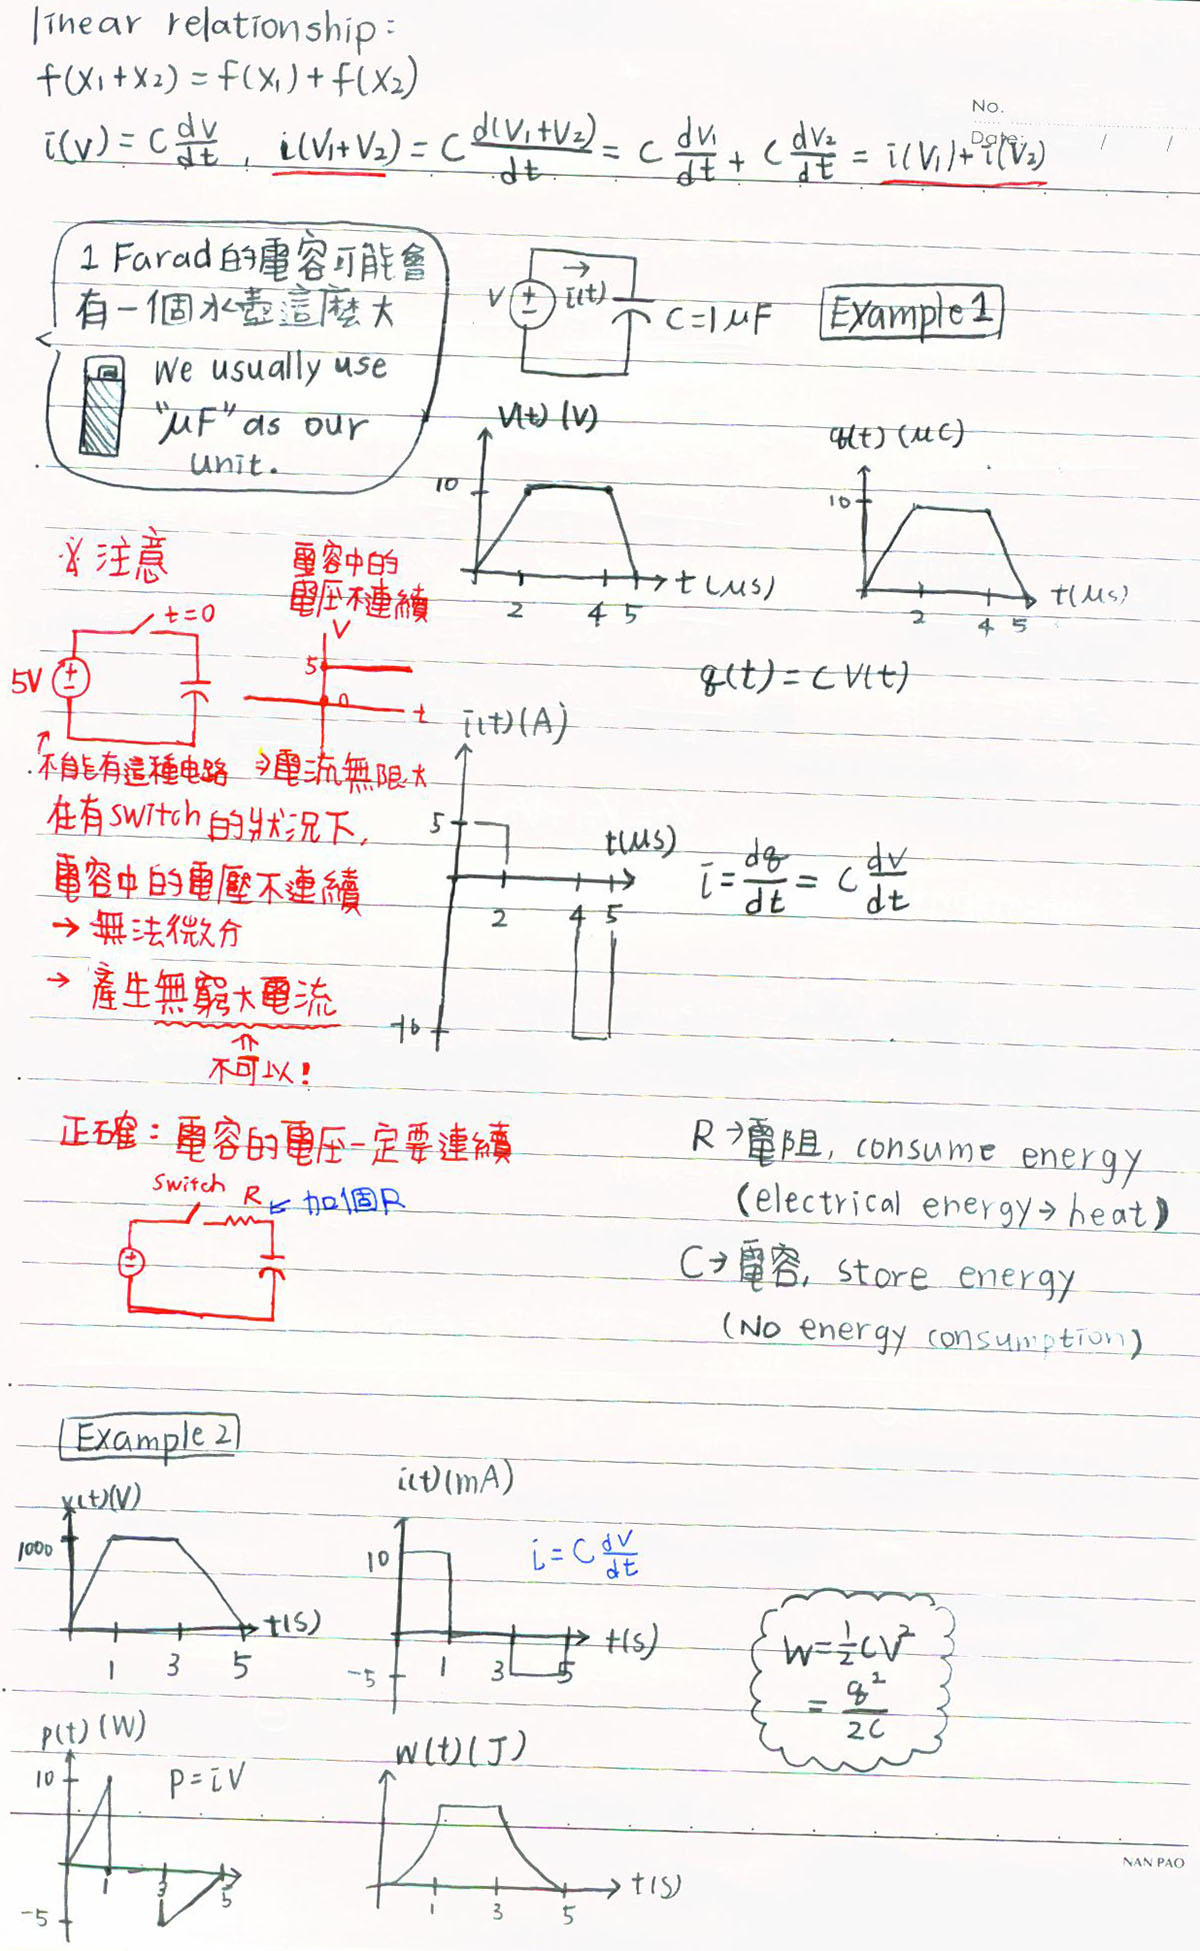 linear relationship:
f(x₁+x₂) = f(x₁)+f(x₂)
No.
Date: / /
i(v) = C dv/dt , i(V₁+V₂) = C d(V₁+V₂)/dt = C dV₁/dt + C dV₂/dt = i(V₁)+i(V₂)
1 Farad的電容可能會
有一個水壺這麼大
We usually use
"μF" as our
unit.
V
+
-
i(t)
C=1μF
Example 1
V(t) (V)
10
2 4 5
t(μs)
q(t) (μC)
10
2 4 5
t(μs)
q(t) = CV(t)
※注意
t=0
5V
+
-
電容中的
電压不連續
V
5
0
t
不能有這種电路
⇒電流無限大
在有switch的狀況下,
電容中的電壓不連續
→ 無法微分
→ 產生無窮大電流
⇑
不可以!
i(t)(A)
5
t(μs)
2 4 5
-10
i = dq/dt = C dv/dt
正確: 電容的電压一定要連續
switch R ← 加個R
+
-
R→電阻, consume energy
(electrical energy→heat)
C→電容, store energy
(No energy consumption)
Example 2
v(t)(V)
1000
1 3 5
t(s)
i(t)(mA)
10
-5
1 3 5
t(s)
i = C dV/dt
W = ½CV²
= q²/2C
p(t) (W)
10
P = iV
1 3 5
-5
W(t)(J)
1 3 5
t(s)
NAN PAO